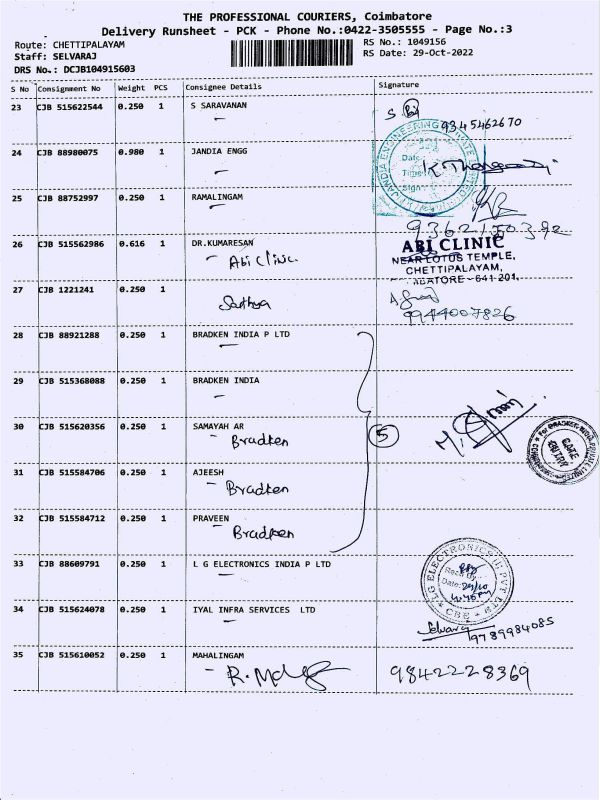 THE PROFESSIONAL COURIERS, Coimbatore
Delivery Runsheet - PCK - Phone No.:0422-3505555 - Page No.:3
Route: CHETTIPALAYAM
Staff: SELVARAJ
DRS No.: DCJB104915603
RS No.: 1049156
RS Date: 29-Oct-2022
S No Consignment No Weight PCS Consignee Details Signature
23 CJB 515622544 0.250 1 S SARAVANAN
9345462670
24 CJB 88980075 0.980 1 JANDIA ENGG
Date
Time
Sign
25 CJB 88752997 0.250 1 RAMALINGAM
26 CJB 515562986 0.616 1 DR.KUMARESAN
Abi Clinic.
ABI CLINIC
NEAR LOTUS TEMPLE,
CHETTIPALAYAM,
641 201.
27 CJB 1221241 0.250 1
Sathya
9944007826
28 CJB 88921288 0.250 1 BRADKEN INDIA P LTD
29 CJB 515368088 0.250 1 BRADKEN INDIA
30 CJB 515620356 0.250 1 SAMAYAH AR
Bradken
5
GATE
ENTRY
31 CJB 515584706 0.250 1 AJEESH
Bradken
32 CJB 515584712 0.250 1 PRAVEEN
Bradken
33 CJB 88609791 0.250 1 L G ELECTRONICS INDIA P LTD
L.G ELECTRONICS (I) PVT LTD
Date: 29/10
CBE
34 CJB 515624078 0.250 1 IYAL INFRA SERVICES LTD
Selvaraj
9789984085
35 CJB 515610052 0.250 1 MAHALINGAM
9842228369